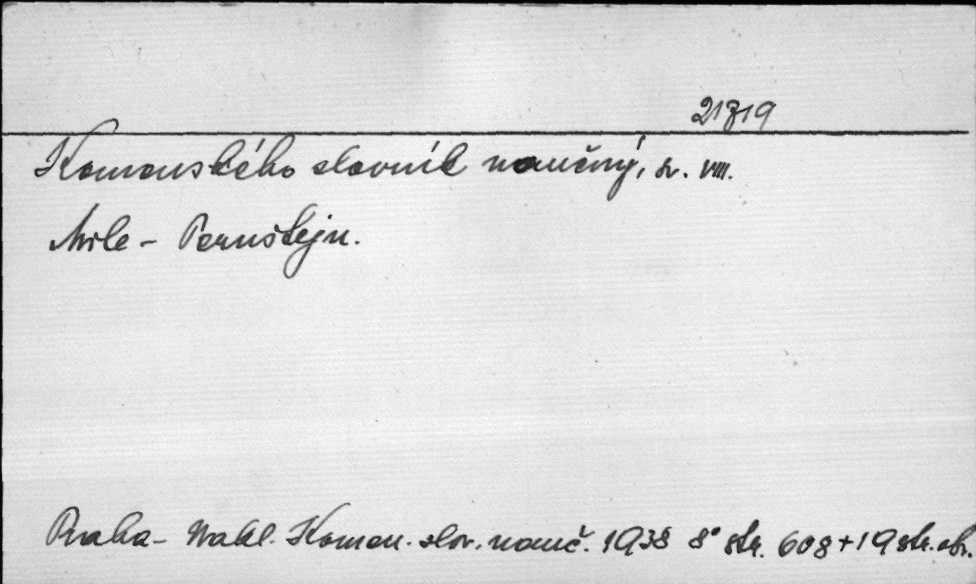 21819
Komenského slovník naučný, sv. VIII.
Mrle - Pernštejn.
Praha - Nakl. Komen. slov. nauč. 1938 8° str. 608+19 str. obr.